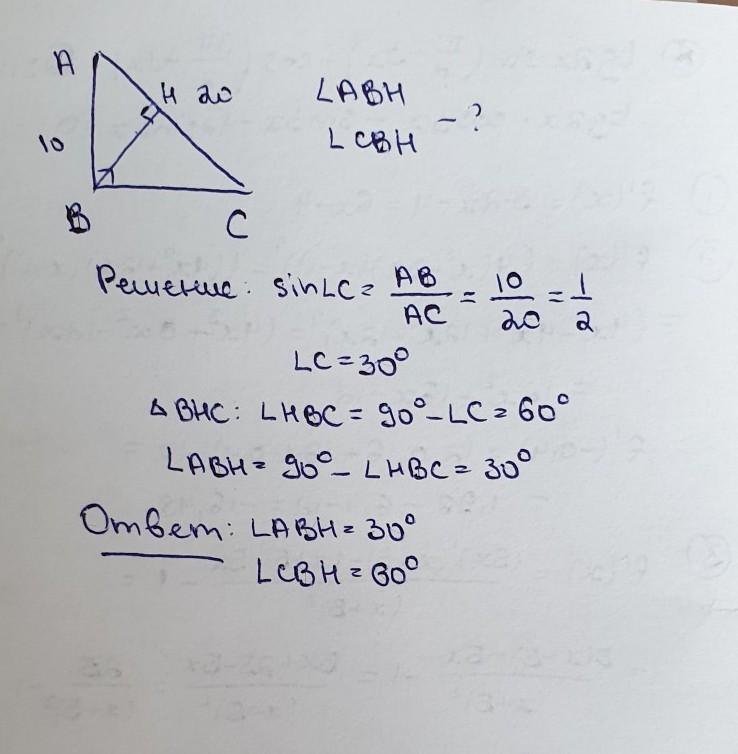 A
H 20
10
B
C
∠ABH
∠CBH - ?
Решение: sin∠C = AB/AC = 10/20 = 1/2
∠C = 30°
△BHC: ∠HBC = 90° - ∠C = 60°
∠ABH = 90° - ∠HBC = 30°
Ответ: ∠ABH = 30°
∠CBH = 60°